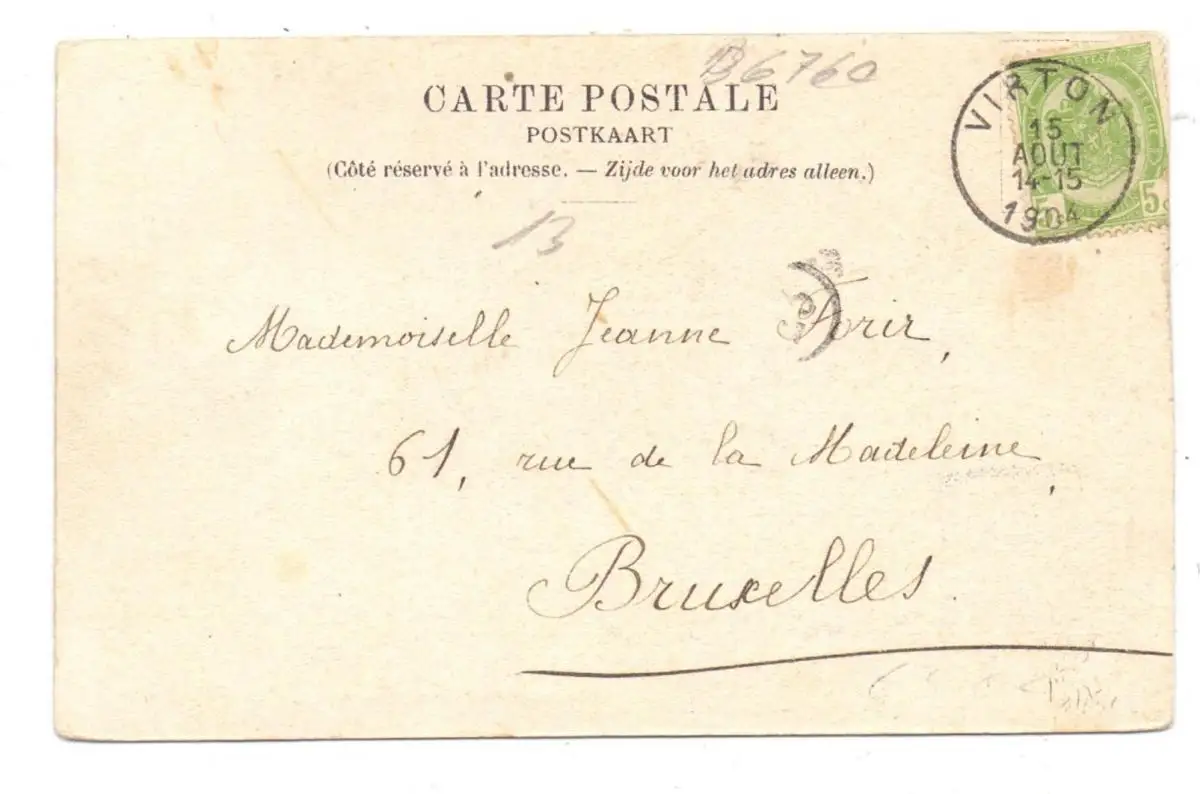 B6760
CARTE POSTALE
POSTKAART
(Côté réservé à l'adresse. — Zijde voor het adres alleen.)
VIRTON
15
AOUT
14-15
1904
5
13
Mademoiselle Jeanne
61, rue de la Madeleine,
Bruxelles.